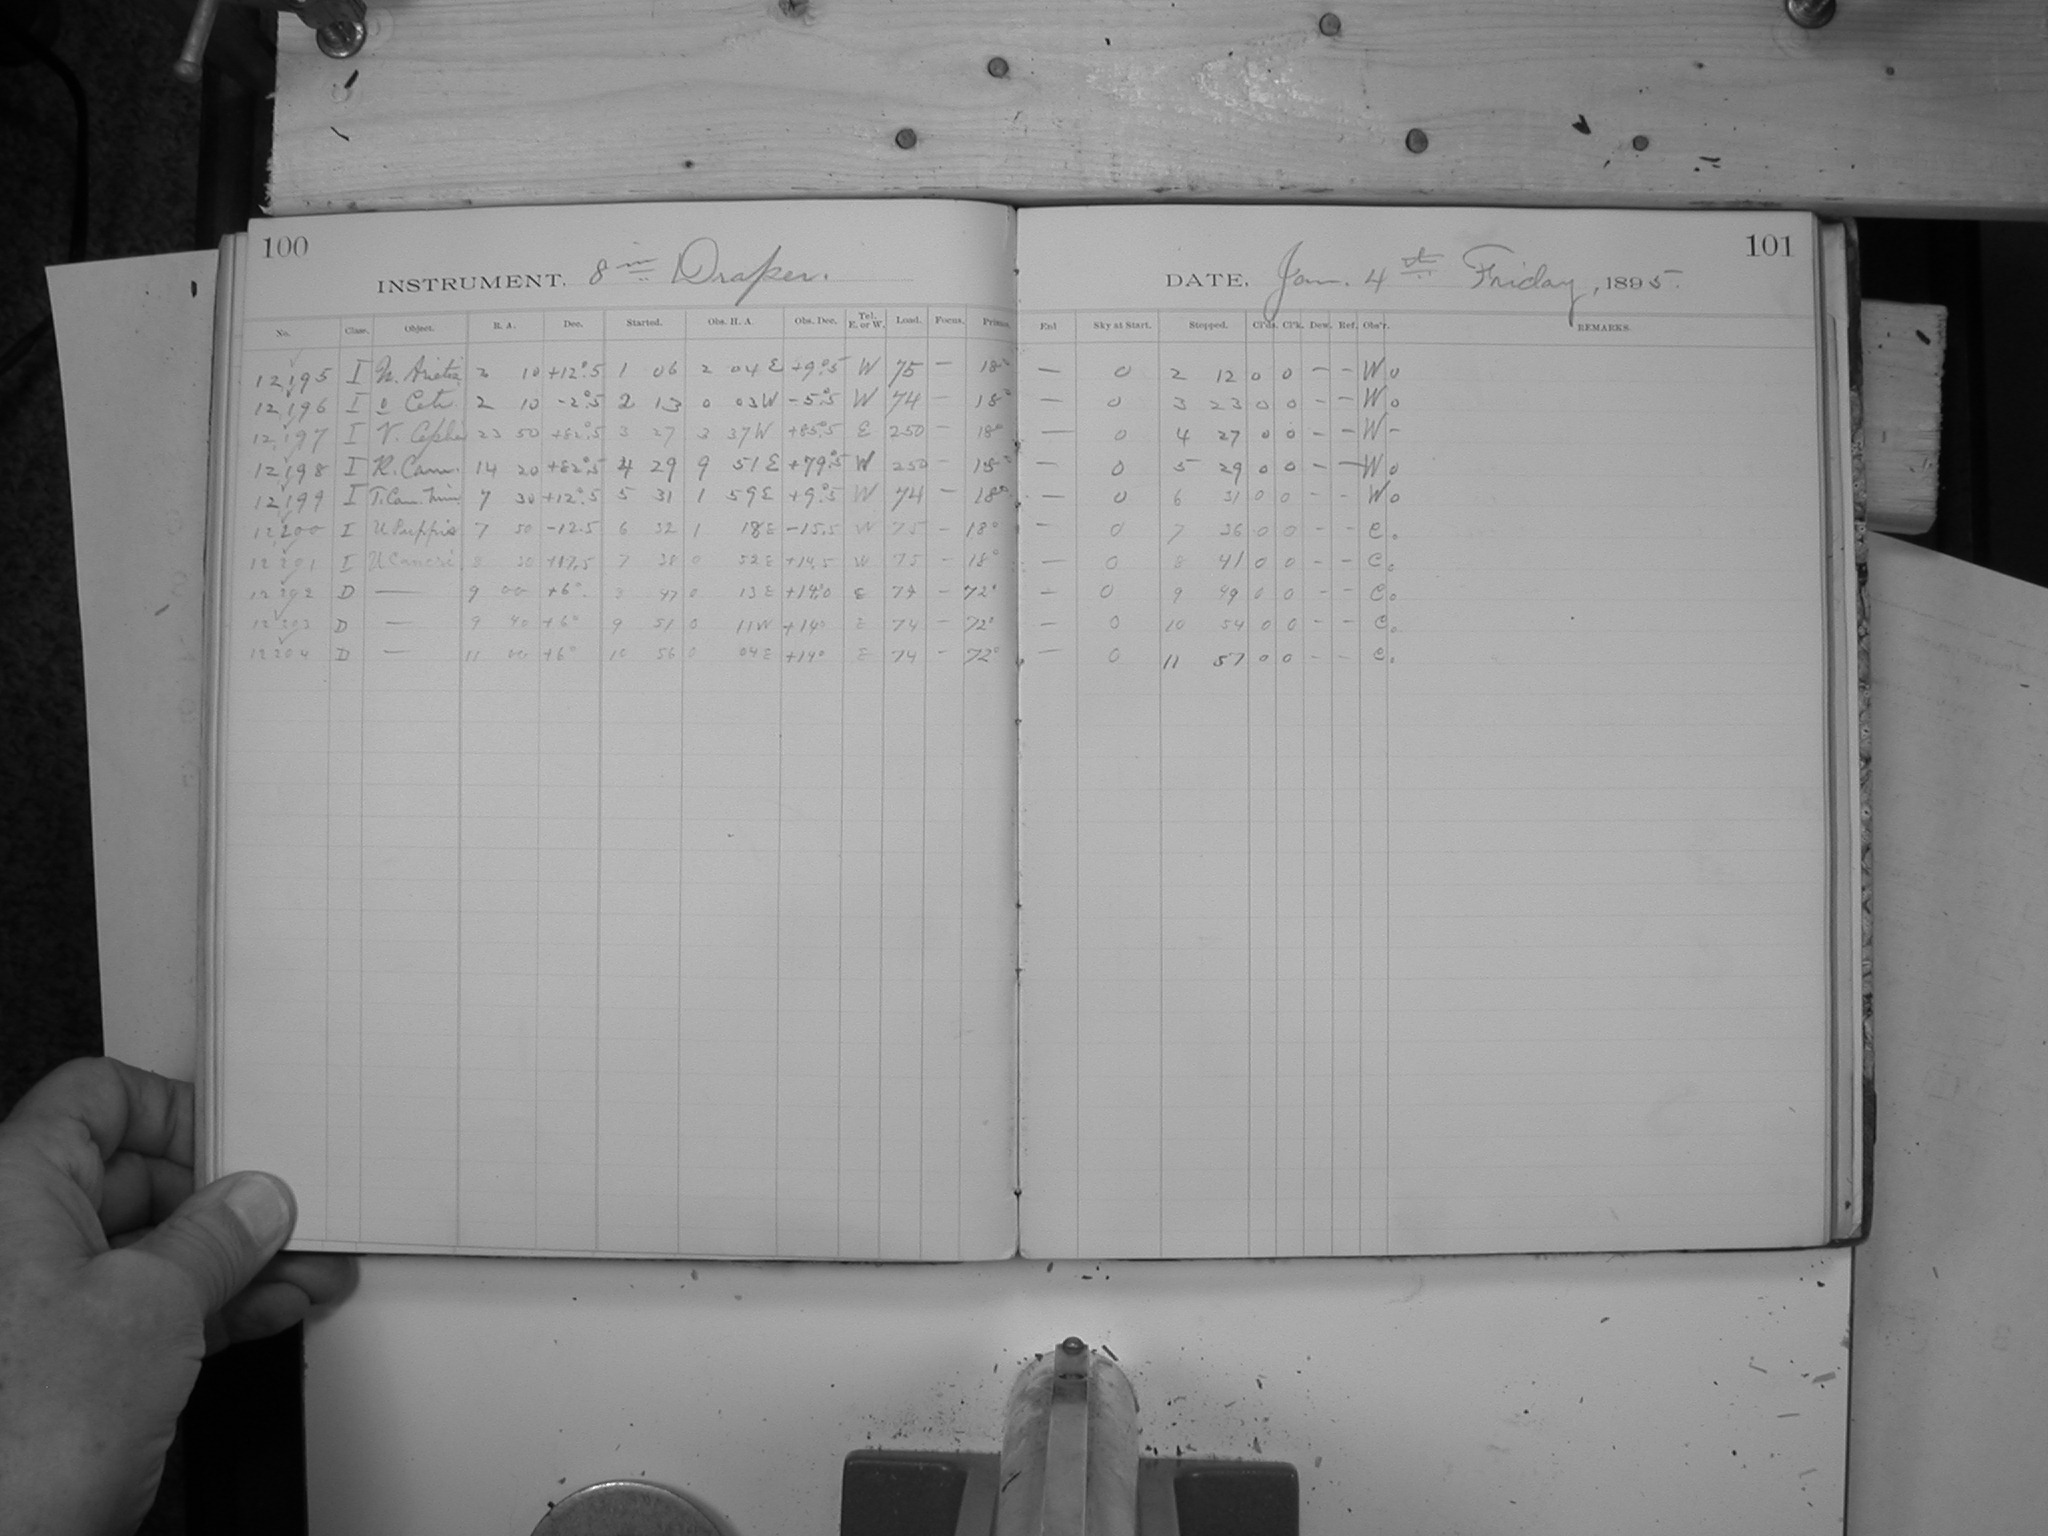 100
INSTRUMENT. 8 in Draper.
No. Class. Object. R. A. Dec. Started. Obs. H. A. Obs. Dec. Tel. E. or W. Load. Focus. Prisms.
12195 I Arietis 2 10 +12°.5 1 06 2 04 E +9°.5 W 75 – 18°
12196 I o Ceti 2 10 -2°.5 2 13 0 03 W -5°.5 W 74 – 18°
12197 I V. Cephei 23 50 +82°.5 3 27 3 37 W +85°.5 E 250 – 18°
12198 I R. Cam. 14 20 +82°.5 4 29 9 51 E +79°.5 W 250 – 18°
12199 I T. Can. Min. 7 30 +12°.5 5 31 1 59 E +9°.5 W 74 – 18°
12200 I U Puppis 7 50 -12.5 6 32 1 18 E -15.5 W 75 – 18°
12201 I U Cancri 8 30 +17.5 7 38 0 52 E +14.5 W 75 – 18°
12202 D — 9 00 +6° 8 47 0 13 E +14°.0 E 74 – 72°
12203 D — 9 40 +6° 9 51 0 11 W +14° E 74 – 72°
12204 D — 11 00 +6° 10 56 0 04 E +14° E 74 – 72°
101
DATE. Jan. 4th Friday, 1895.
Enl Sky at Start. Stopped. Cl'ds. Cl'k. Dew. Ref. Obs'r. REMARKS.
— 0 2 12 0 0 – – W 0
— 0 3 23 0 0 – – W 0
— 0 4 27 0 0 – – W –
— 0 5 29 0 0 – – W 0
— 0 6 31 0 0 – – W 0
— 0 7 36 0 0 – – C.
— 0 8 41 0 0 – – C.
— 0 9 49 0 0 – – C.
— 0 10 54 0 0 – – C.
— 0 11 57 0 0 – – C.